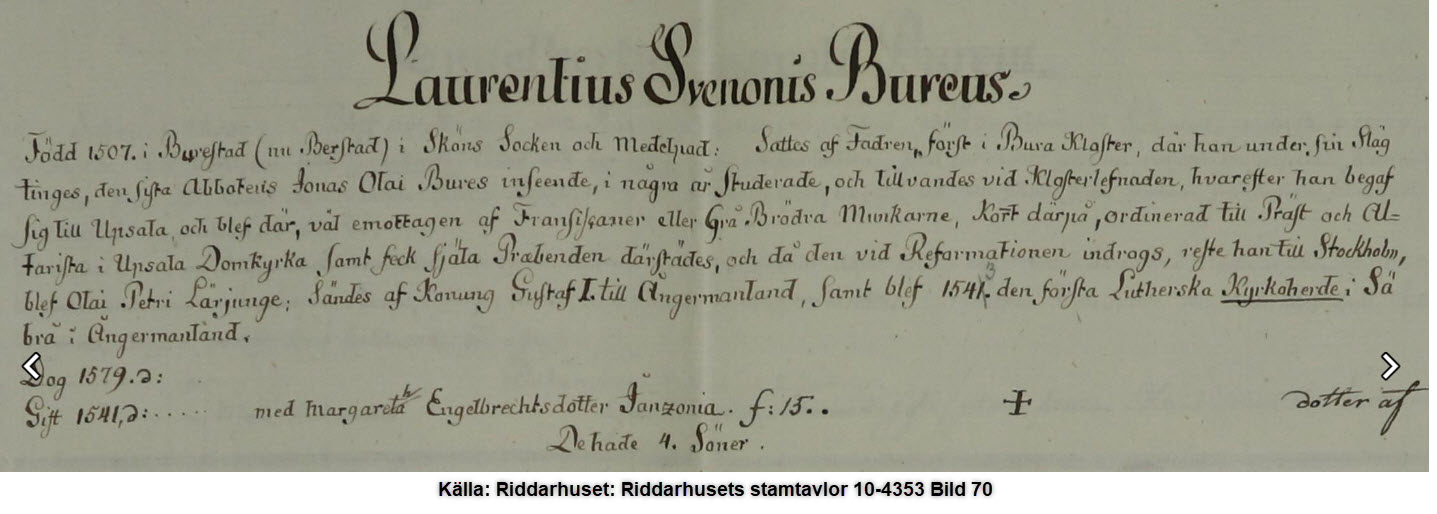 Laurentius Svenonis Bureus.
Född 1507. i Burestad (nu Berstad) i Sköns Socken och Medelpad: Sattes af Fadren, först i Bura Kloster, där han under sin Släg
tinges, den sista Abbotens Jonas Olai Bures inseende, i några år studerade, och tillvandes vid Klosterlefnaden, hvarefter han begaf
sig till Upsala, och blef där, väl emottagen af Fransiscaner eller Grå Brödra Munkarne, Kort därpå, ordinerad till Präst och Al=
tarista i Upsala Domkyrka samt feck själa Præbenden därstädes, och då den vid Reformationen indrogs, reste han till Stockholm,
blef Olai Petri Lärjunge; Sändes af Konung Gustaf I. till Ångermanland, samt blef 1541. den första Lutherska Kyrkoherde i Så
brå i Ångermanland.
Dog 1579.d:
Gift 1541,d:..... med Margareta Engelbrechtsdotter Janzonia. f: 15.. + dotter af
De hade 4. Söner.
Källa: Riddarhuset: Riddarhusets stamtavlor 10-4353 Bild 70